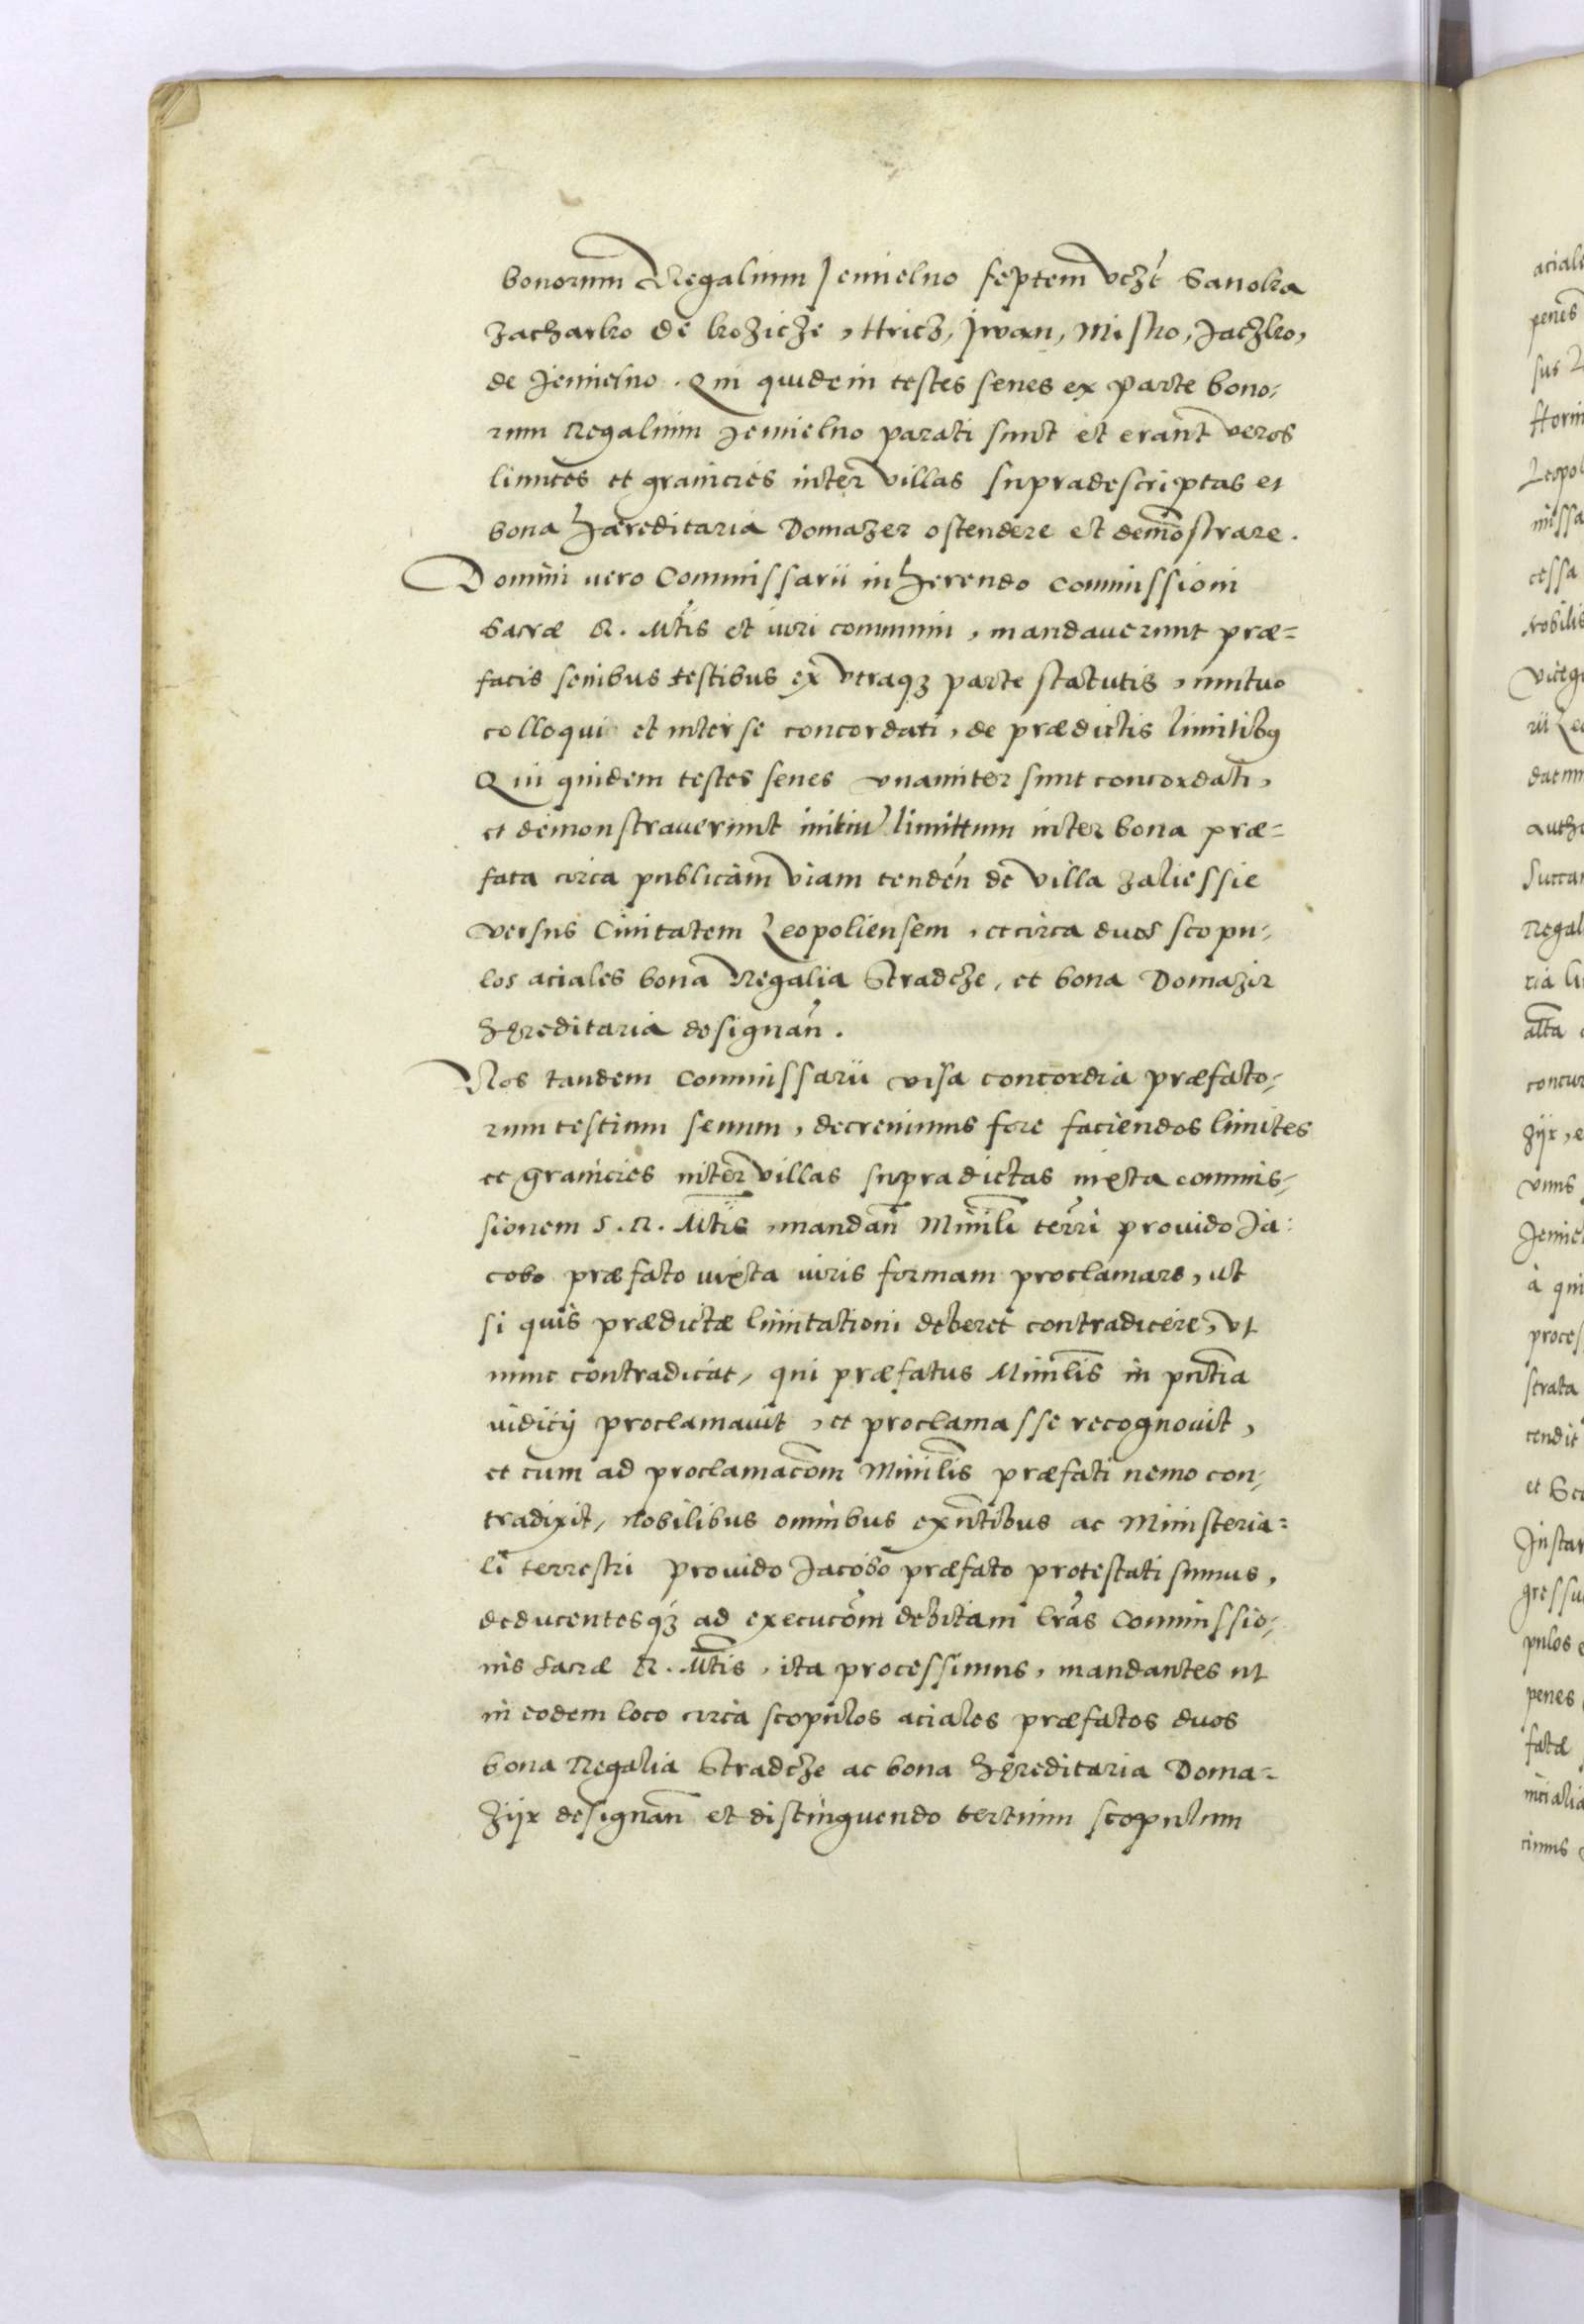 bonorum Regalium Jemielno septem vczt Sanoka
Zacharko de koziche, Hricz, Jwan, Misko, Jaczko,
de Jemielno. Qui quidem testes senes ex parte bono-
rum Regalium Jemielno parati sunt et erant veros
limites et granicies inter villas supradescriptas et
bona hæreditaria Domazer ostendere et demostrare.
Domini vero Commissarii inherendo commissioni
Sacræ R. Mtis et iuri communi, mandauerunt præ=
facis senibus testibus ex vtraqz parte statutis, mutuo
colloqui et inter se concordati, de prædictis limitibus
Qui quidem testes senes vnamiter sunt concordati,
et demonstrauerunt initiu limitum inter bona præ=
fata circa publicam viam tenden de villa Zaliessie
versus Ciuitatem Leopoliensem, et circa duos scopu-
los aciales bona Regalia Stradcze, et bona Domazir
hęreditaria designan.
Nos tandem Commissarii visa concordia præfato-
rum testium senum, decreuimus fore faciendos limites
et granicies inter villas supradictas iuxta commis-
sionem S. R. Mtis, mandan Minili terri prouido Ja:
cobo præfato iuxta iuris formam proclamare, ut
si quis prædictæ limitationi deberet contradicere, vt
nunc contradicat, qui præfatus Minilis in pntia
iudicij proclamauit, et proclamasse recognouit,
et cum ad proclamacom Minilis præfati nemo con-
tradixit, nobilibus omnibus exntibus ac Ministeria=
li terrestri prouido Jacobo præfato protestati sumus,
deducentesqz ad execucom debitam lras Commissio-
nis Sacræ R. Mtis, ita processimus, mandantes ut
in eodem loco circa scopulos aciales præfatos duos
bona Regalia Stradcze ac bona hęreditaria Doma=
zijr designan et distinguendo tertium scopulum